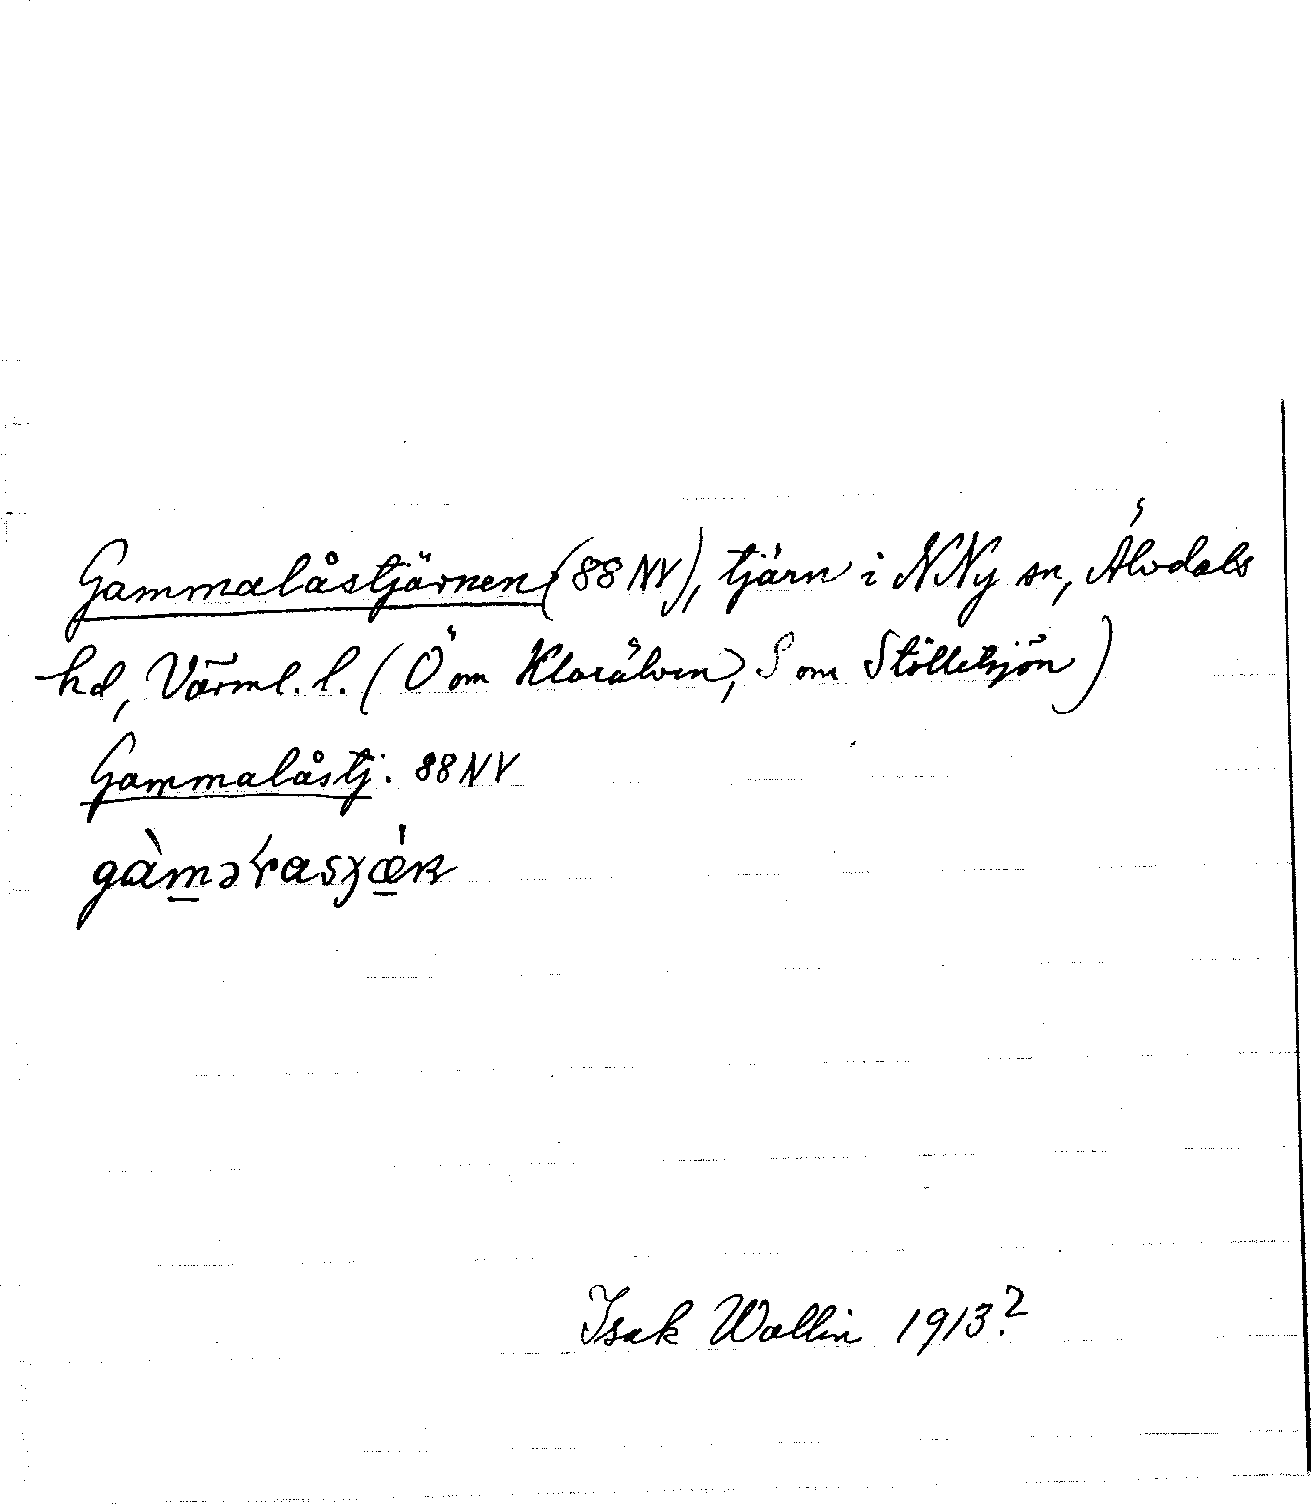 Gammalåstjärnen (88 NV), tjärn i N Ny sn, Älvdals
hd, Värml. l. (Ö om Klarälven, S om Stölletsjön)
Gammalåstj. 88 NV
Isak Wallin 1913?